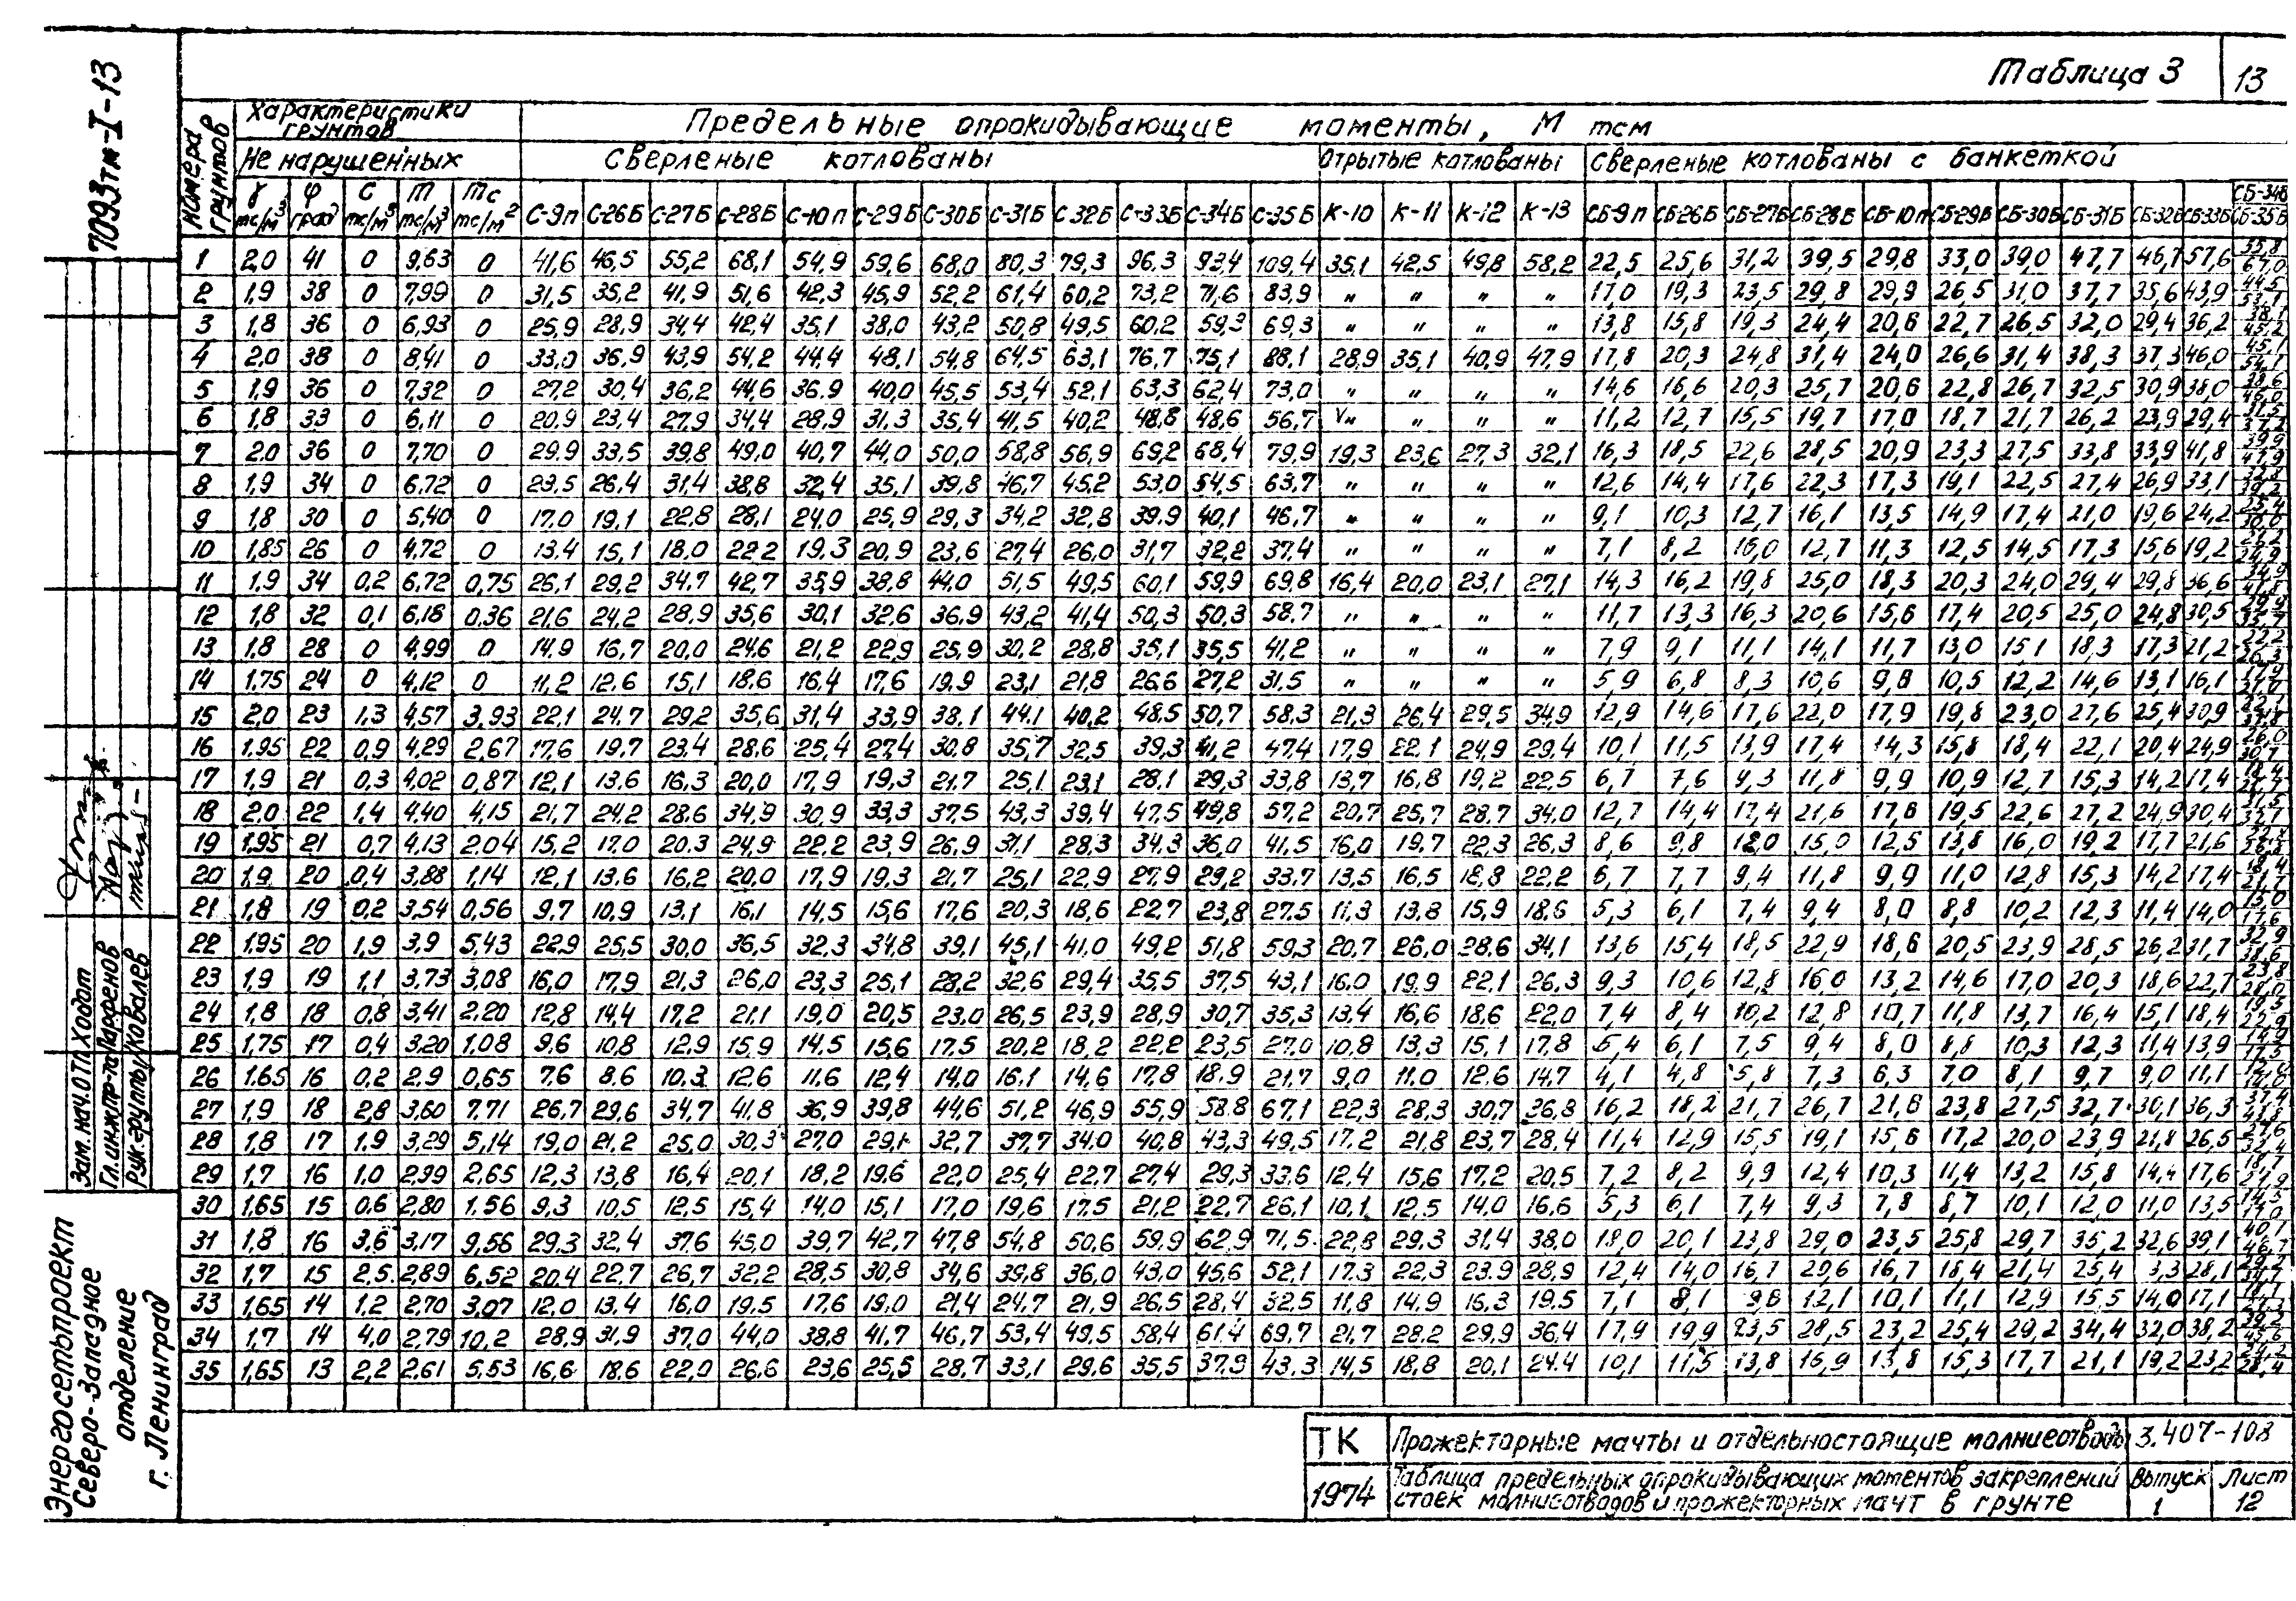 Таблица 3
13
7093тм-I-13
Номера грунтов
Характеристики грунтов
Предельные опрокидывающие моменты, М тсм
Не нарушенных
Сверленые котлованы
Отрытые котлованы
Сверленые котлованы с банкеткой
γ тс/м³ φ град С тс/м³ m тс/м³ mc тс/м² С-9п С-26Б С-27Б С-28Б С-10п С-29Б С-30Б С-31Б С 32Б С-33Б С-34Б С-35Б К-10 К-11 К-12 К-13 СБ-9п СБ-26Б СБ-27Б СБ-28Б СБ-10п СБ-29Б СБ-30Б СБ-31Б СБ-32Б СБ-33Б СБ-34Б СБ-35Б
1 2,0 41 0 9,63 0 41,6 46,5 55,2 68,1 54,9 59,6 68,0 80,3 79,3 96,3 93,4 109,4 35,1 42,5 49,8 58,2 22,5 25,6 31,2 39,5 29,8 33,0 39,0 47,7 46,7 57,6 55,8 67,0
2 1,9 38 0 7,99 0 31,5 35,2 41,9 51,6 42,3 45,9 52,2 61,4 60,2 73,2 71,6 83,9 „ „ „ „ 17,0 19,3 23,5 29,8 29,9 26,5 31,0 37,7 35,6 43,9 44,5 53,1
3 1,8 36 0 6,93 0 25,9 28,9 34,4 42,4 35,1 38,0 43,2 50,8 49,5 60,2 59,3 69,3 „ „ „ „ 13,8 15,8 19,3 24,4 20,6 22,7 26,5 32,0 29,4 36,2 38,1 45,2
4 2,0 38 0 8,41 0 33,0 36,9 43,9 54,2 44,4 48,1 54,8 64,5 63,1 76,7 75,1 88,1 28,9 35,1 40,9 47,9 17,8 20,3 24,8 31,4 24,0 26,6 31,4 38,3 37,3 46,0 45,1 54,1
5 1,9 36 0 7,32 0 27,2 30,4 36,2 44,6 36,9 40,0 45,5 53,4 52,1 63,3 62,4 73,0 „ „ „ „ 14,6 16,6 20,3 25,7 20,6 22,8 26,7 32,5 30,9 38,0 38,6 46,0
6 1,8 33 0 6,11 0 20,9 23,4 27,9 34,4 28,9 31,3 35,4 41,5 40,2 48,8 48,6 56,7 „ „ „ „ 11,2 12,7 15,5 19,7 17,0 18,7 21,7 26,2 23,9 29,4
7 2,0 36 0 7,70 0 29,9 33,5 39,8 49,0 40,7 44,0 50,0 58,8 56,9 69,2 68,4 79,9 19,3 23,6 27,3 32,1 16,3 18,5 22,6 28,5 20,9 23,3 27,5 33,8 33,9 41,8 39,9 47,9
8 1,9 34 0 6,72 0 23,5 26,4 31,4 38,8 32,4 35,1 39,8 46,7 45,2 53,0 54,5 63,7 „ „ „ „ 12,6 14,4 17,6 22,3 17,3 19,1 22,5 27,4 26,9 33,1 32,8 39,2
9 1,8 30 0 5,40 0 17,0 19,1 22,8 28,1 24,0 25,9 29,3 34,2 32,8 39,9 40,1 46,7 „ „ „ „ 9,1 10,3 12,7 16,1 13,5 14,9 17,4 21,0 19,6 24,2 25,4 30,0
10 1,85 26 0 4,72 0 13,4 15,1 18,0 22,2 19,3 20,9 23,6 27,4 26,0 31,7 32,2 37,4 „ „ „ „ 7,1 8,2 10,0 12,7 11,3 12,5 14,5 17,3 15,6 19,2 21,2 24,9
11 1,9 34 0,2 6,72 0,75 26,1 29,2 34,7 42,7 35,9 38,8 44,0 51,5 49,5 60,1 59,9 69,8 16,4 20,0 23,1 27,1 14,3 16,2 19,8 25,0 18,3 20,3 24,0 29,4 29,8 36,6
12 1,8 32 0,1 6,18 0,36 21,6 24,2 28,9 35,6 30,1 32,6 36,9 43,2 41,4 50,3 50,3 58,7 „ „ „ „ 11,7 13,3 16,3 20,6 15,6 17,4 20,5 25,0 24,8 30,5
13 1,8 28 0 4,99 0 14,9 16,7 20,0 24,6 21,2 22,9 25,9 30,2 28,8 35,1 35,5 41,2 „ „ „ „ 7,9 9,1 11,1 14,1 11,7 13,0 15,1 18,3 17,3 21,2 22,2 26,3
14 1,75 24 0 4,12 0 11,2 12,6 15,1 18,6 16,4 17,6 19,9 23,1 21,8 26,6 27,2 31,5 „ „ „ „ 5,9 6,8 8,3 10,6 9,8 10,5 12,2 14,6 13,1 16,1
15 2,0 23 1,3 4,57 3,93 22,1 24,7 29,2 35,6 31,4 33,9 38,1 44,1 40,2 48,5 50,7 58,3 21,3 26,4 29,5 34,9 12,9 14,6 17,6 22,0 17,9 19,8 23,0 27,6 25,4 30,9
16 1,95 22 0,9 4,29 2,67 17,6 19,7 23,4 28,6 25,4 27,4 30,8 35,7 32,5 39,3 41,2 47,4 17,9 22,1 24,9 29,4 10,1 11,5 13,9 17,4 14,3 15,8 18,4 22,1 20,4 24,9 26,0 30,7
17 1,9 21 0,3 4,02 0,87 12,1 13,6 16,3 20,0 17,9 19,3 21,7 25,1 23,1 28,1 29,3 33,8 13,7 16,8 19,2 22,5 6,7 7,6 9,3 11,8 9,9 10,9 12,7 15,3 14,2 17,4
18 2,0 22 1,4 4,40 4,15 21,7 24,2 28,6 34,9 30,9 33,3 37,5 43,3 39,4 47,5 49,8 57,2 20,7 25,7 28,7 34,0 12,7 14,4 17,4 21,6 17,6 19,5 22,6 27,2 24,9 30,4
19 1,95 21 0,7 4,13 2,04 15,2 17,0 20,3 24,9 22,2 23,9 26,9 31,1 28,3 34,3 36,0 41,5 16,0 19,7 22,3 26,3 8,6 9,8 12,0 15,0 12,5 13,8 16,0 19,2 17,7 21,6
20 1,9 20 0,4 3,88 1,14 12,1 13,6 16,2 20,0 17,9 19,3 21,7 25,1 22,9 27,9 29,2 33,7 13,5 16,5 18,8 22,2 6,7 7,7 9,4 11,8 9,9 11,0 12,8 15,3 14,2 17,4
21 1,8 19 0,2 3,54 0,56 9,7 10,9 13,1 16,1 14,5 15,6 17,6 20,3 18,6 22,7 23,8 27,5 11,3 13,8 15,9 18,6 5,3 6,1 7,4 9,4 8,0 8,8 10,2 12,3 11,4 14,0 15,0 17,6
22 1,95 20 1,9 3,9 5,43 22,9 25,5 30,0 36,5 32,3 34,8 39,1 45,1 41,0 49,2 51,8 59,3 20,7 26,0 28,6 34,1 13,6 15,4 18,5 22,9 18,6 20,5 23,9 28,5 26,2 31,7 32,9 38,6
23 1,9 19 1,1 3,73 3,08 16,0 17,9 21,3 26,0 23,3 25,1 28,2 32,6 29,4 35,5 37,5 43,1 16,0 19,9 22,1 26,3 9,3 10,6 12,8 16,0 13,2 14,6 17,0 20,3 18,6 22,7 23,8 28,0
24 1,8 18 0,8 3,41 2,20 12,8 14,4 17,2 21,1 19,0 20,5 23,0 26,5 23,9 28,9 30,7 35,3 13,4 16,6 18,6 22,0 7,4 8,4 10,2 12,8 10,7 11,8 13,7 16,4 15,1 18,4
25 1,75 17 0,4 3,20 1,08 9,6 10,8 12,9 15,9 14,5 15,6 17,5 20,2 18,2 22,2 23,5 27,0 10,8 13,3 15,1 17,8 5,4 6,1 7,5 9,4 8,0 8,8 10,3 12,3 11,4 13,9
26 1,65 16 0,2 2,9 0,65 7,6 8,6 10,3 12,6 11,6 12,4 14,0 16,1 14,6 17,8 18,9 21,7 9,0 11,0 12,6 14,7 4,1 4,8 5,8 7,3 6,3 7,0 8,1 9,7 9,0 11,1
27 1,9 18 2,8 3,60 7,71 26,7 29,6 34,7 41,8 36,9 39,8 44,6 51,2 46,9 55,9 58,8 67,1 22,3 28,3 30,7 26,8 16,2 18,2 21,7 26,7 21,6 23,8 27,5 32,7 30,1 36,3 37,4 43,8
28 1,8 17 1,9 3,29 5,14 19,0 21,2 25,0 30,3 27,0 29,1 32,7 37,7 34,0 40,8 43,3 49,5 17,2 21,8 23,7 28,4 11,4 12,9 15,5 19,1 15,6 17,2 20,0 23,9 21,8 26,5
29 1,7 16 1,0 2,99 2,65 12,3 13,8 16,4 20,1 18,2 19,6 22,0 25,4 22,7 27,4 29,3 33,6 12,4 15,6 17,2 20,5 7,2 8,2 9,9 12,4 10,3 11,4 13,2 15,8 14,4 17,6
30 1,65 15 0,6 2,80 1,56 9,3 10,5 12,5 15,4 14,0 15,1 17,0 19,6 17,5 21,2 22,7 26,1 10,1 12,5 14,0 16,6 5,3 6,1 7,4 9,3 7,8 8,7 10,1 12,0 11,0 13,5
31 1,8 16 3,6 3,17 9,56 29,3 32,4 37,6 45,0 39,7 42,7 47,8 54,8 50,6 59,9 62,9 71,5 22,8 29,3 31,4 38,0 18,0 20,1 23,8 29,0 23,5 25,8 29,7 35,2 32,6 39,1 40,1 46,7
32 1,7 15 2,5 2,89 6,52 20,4 22,7 26,7 32,2 28,5 30,8 34,6 39,8 36,0 43,0 45,6 52,1 17,3 22,3 23,9 28,9 12,4 14,0 16,7 20,6 16,7 18,4 21,4 25,4 3,3 28,1
33 1,65 14 1,2 2,70 3,07 12,0 13,4 16,0 19,5 17,6 19,0 21,4 24,7 21,9 26,5 28,4 32,5 11,8 14,9 16,3 19,5 7,1 8,1 9,8 12,1 10,1 11,1 12,9 15,5 14,0 17,1
34 1,7 14 4,0 2,79 10,2 28,9 31,9 37,0 44,0 38,8 41,7 46,7 53,4 49,5 58,4 61,4 69,7 21,7 28,2 29,9 36,4 17,9 19,9 23,5 28,5 23,2 25,4 29,2 34,4 32,0 38,2 39,2 45,6
35 1,65 13 2,2 2,61 5,53 16,6 18,6 22,0 26,6 23,6 25,5 28,7 33,1 29,6 35,5 37,9 43,3 14,5 18,8 20,1 24,4 10,1 11,5 13,8 16,9 13,8 15,3 17,7 21,1 19,2 23,2 24,2 28,4
Зам. нач. ОТП Ходот
Гл. инж. пр-та Парфенов
Рук. группы Ковалев
Энергосетьпроект
Северо-Западное
отделение
г. Ленинград
ТК
1974
Прожекторные мачты и отдельностоящие молниеотводы
3.407-108
Таблица предельных опрокидывающих моментов закреплений
стоек молниеотводов и прожекторных мачт в грунте
Выпуск 1
Лист 12